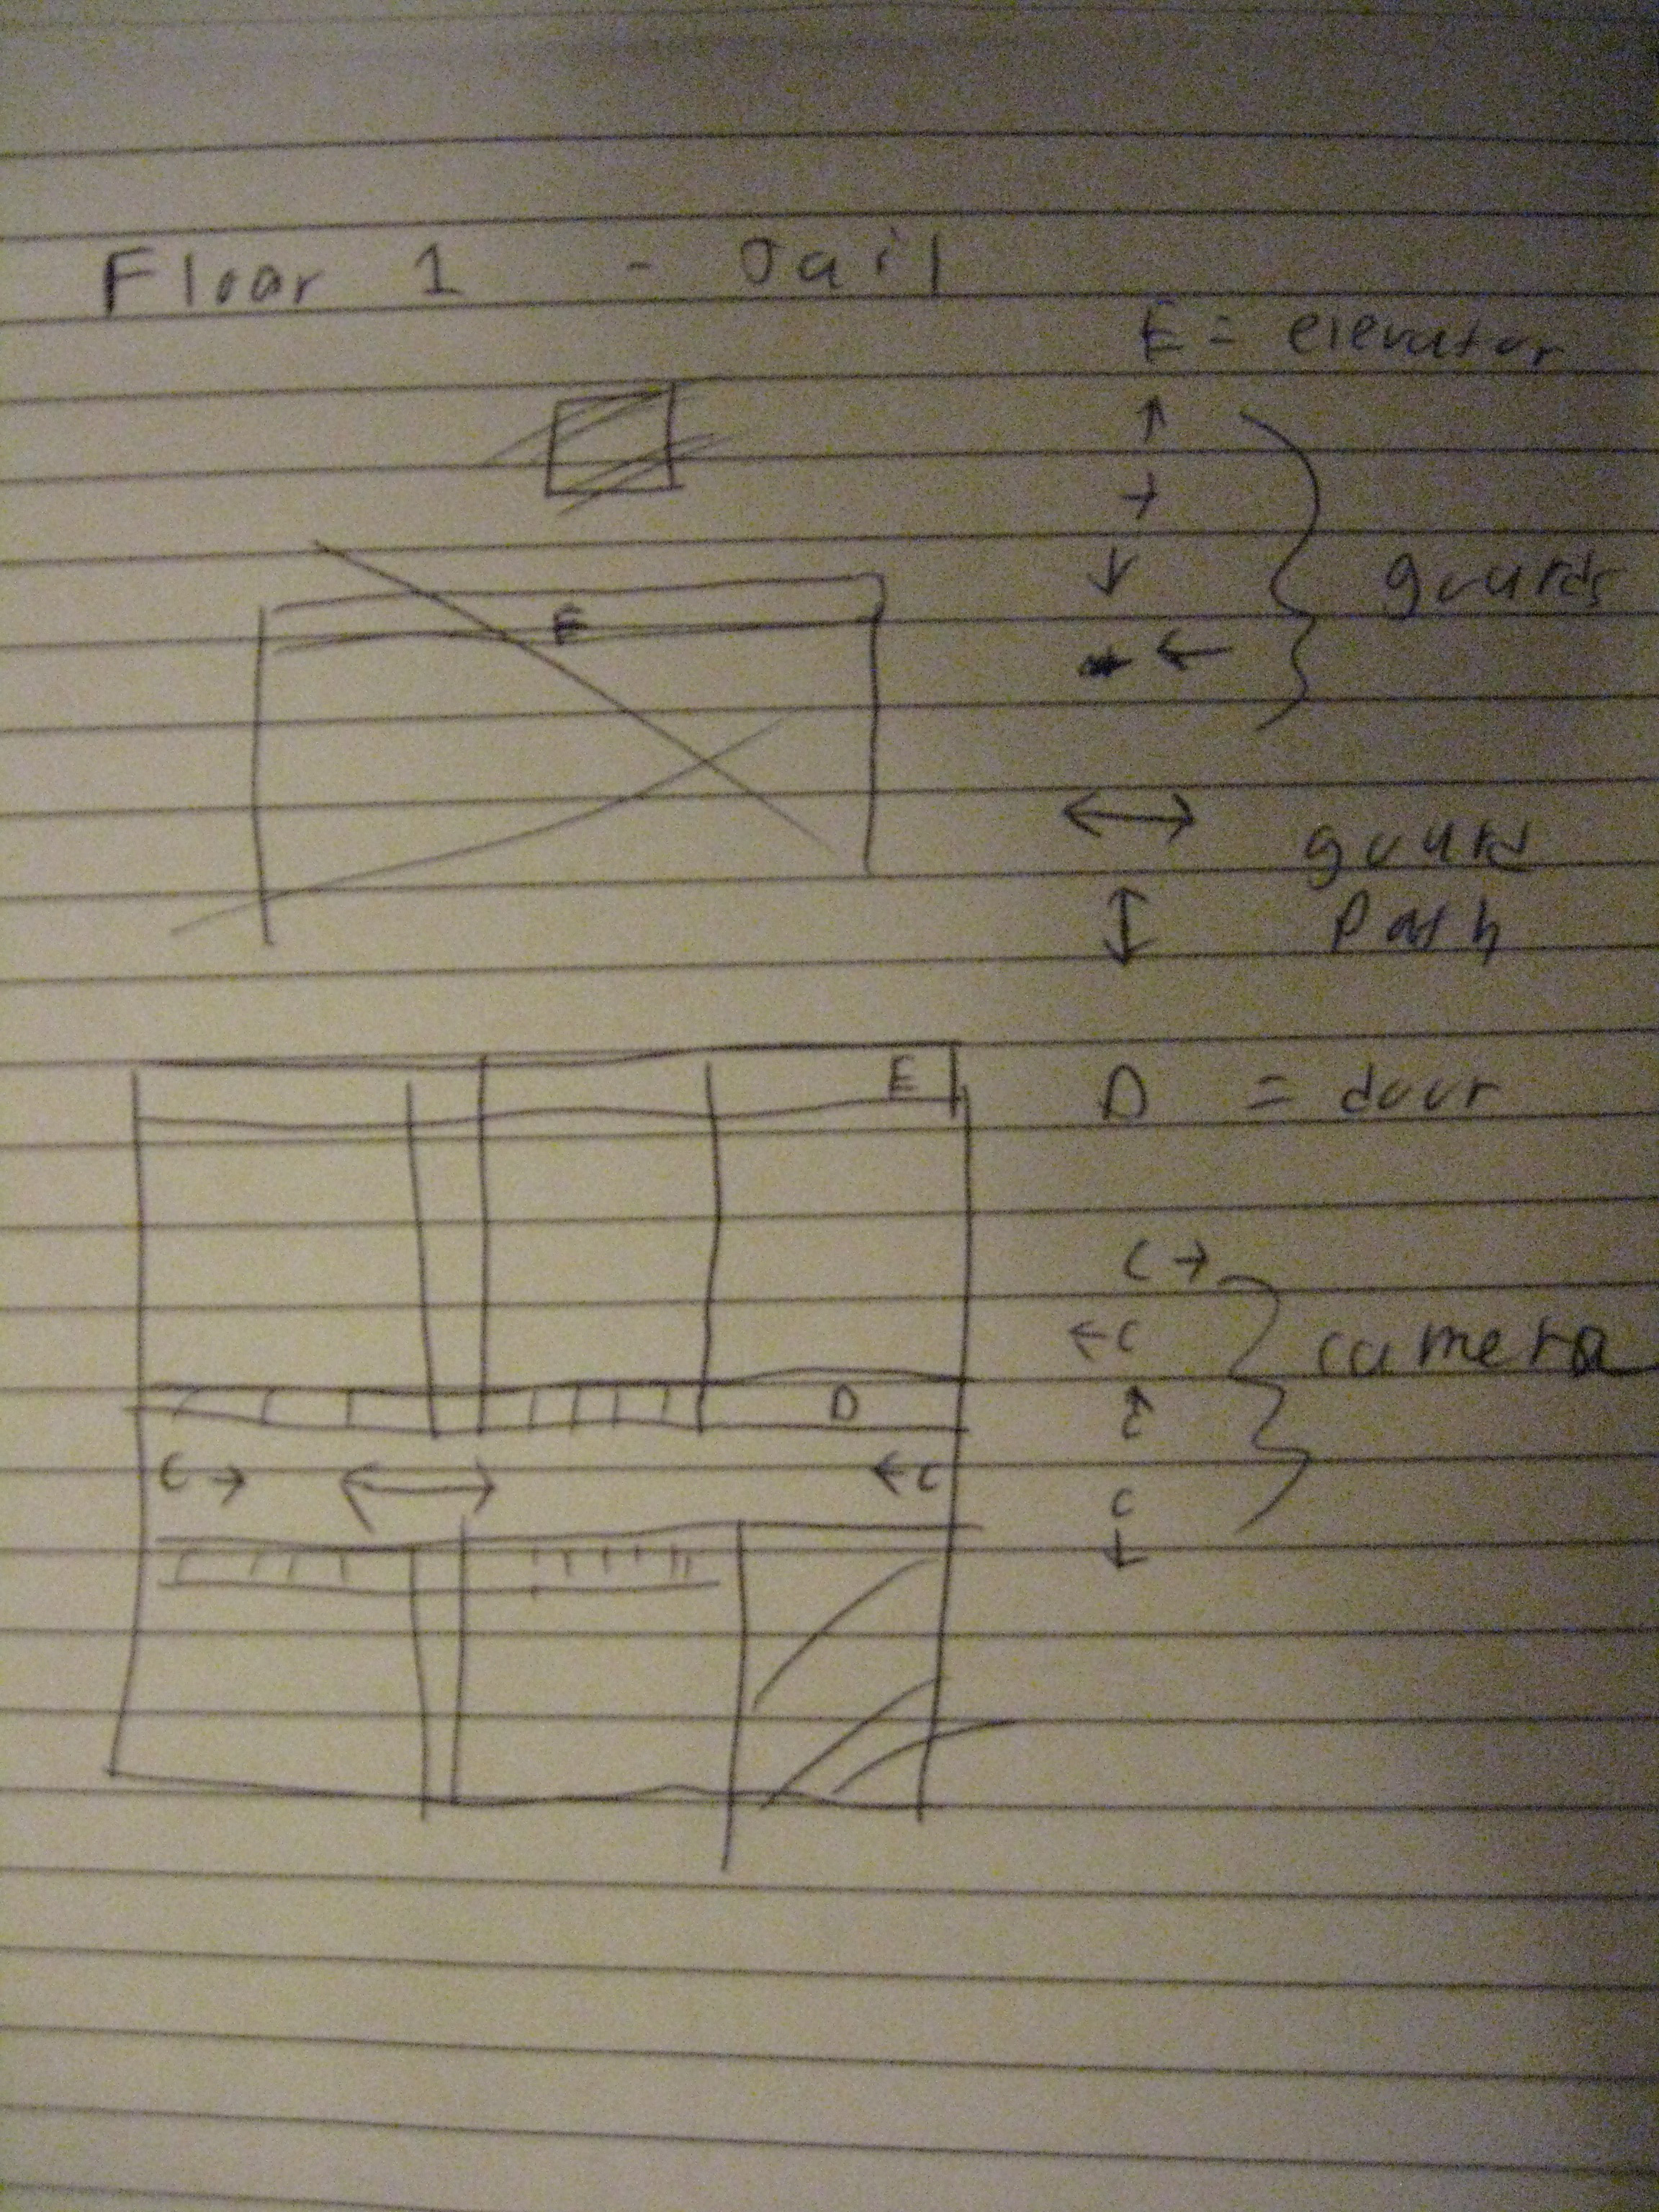 Floor 1 - Jail
E = elevator
↑
→
↓
←
guards
E
↔
guard
Path
↕
E
D = door
C →
← C
camera
↑
C
D
C → ↔ ← C
C
↓